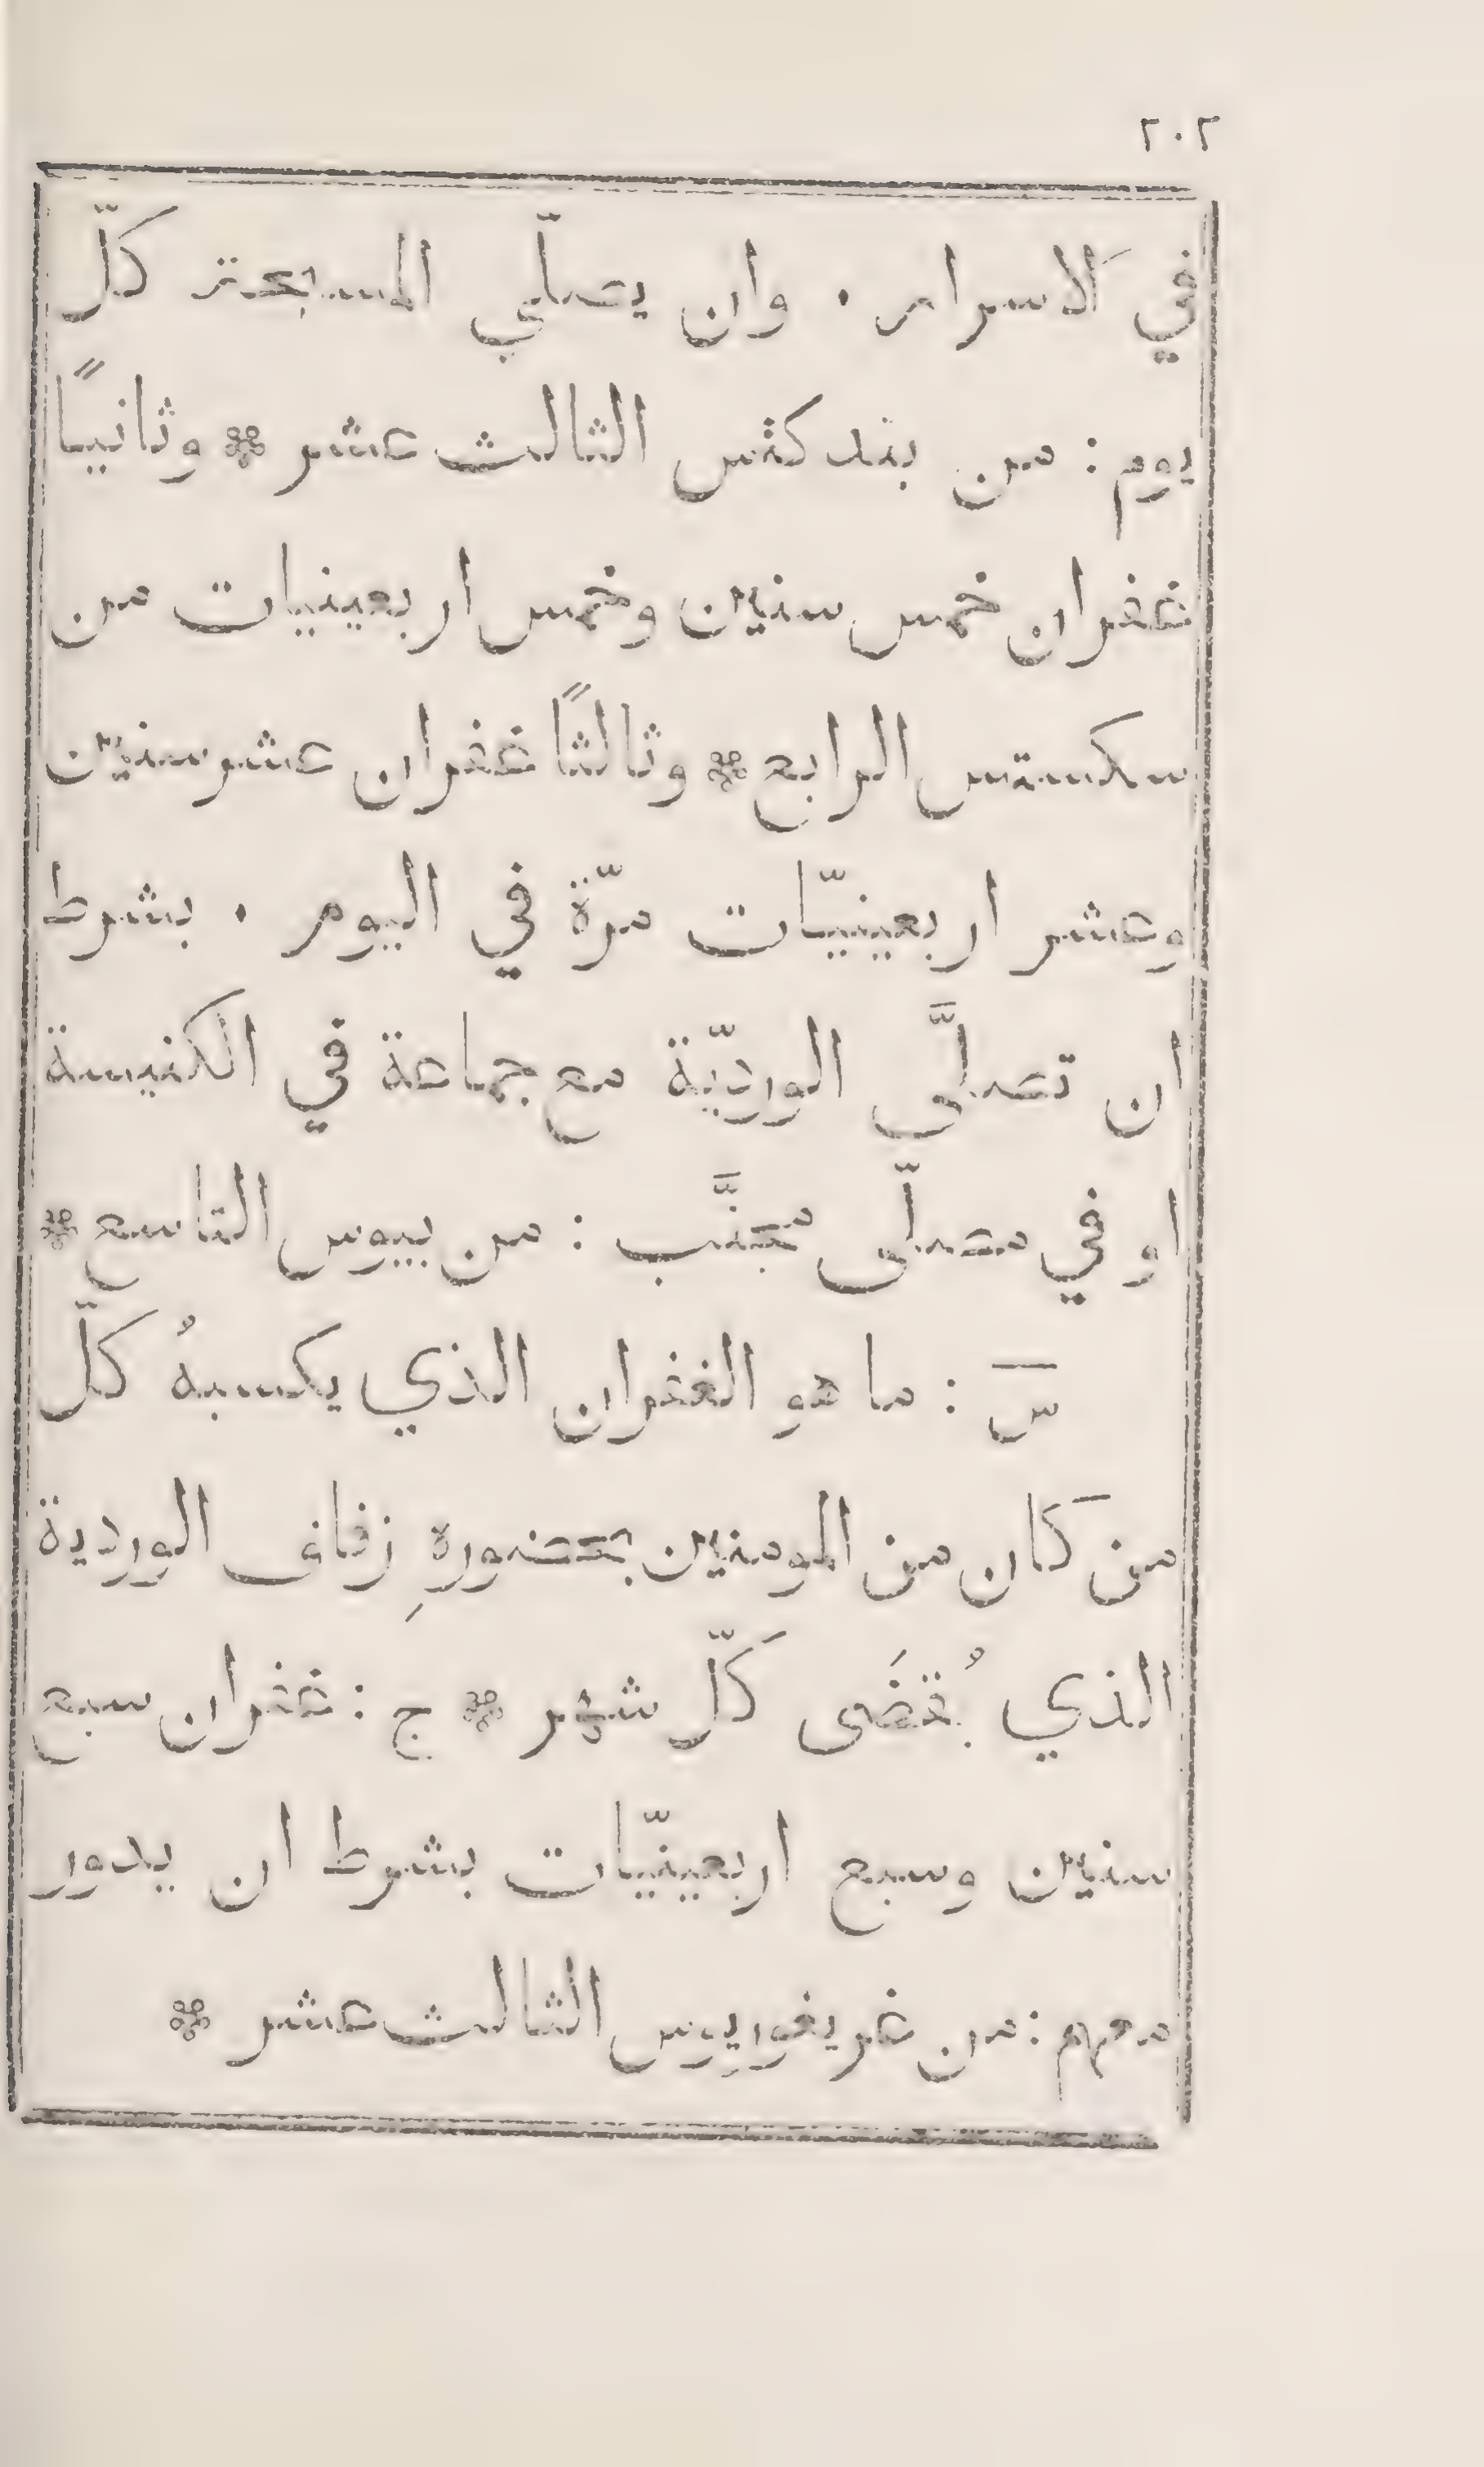 ٢٠٢
في الاسرار . وان يصلّي المسبحة كلّ
يوم : من بندكتس الثالث عشر ❀ وثانيًا
غفران خمس سنين وخمس اربعينيات من
سكستس الرابع ❀ وثالثًا غفران عشر سنين
وعشر اربعينيّات مرّة في اليوم . بشرط
ان تصلَّى الورديّة مع جماعة في الكنيسة
او في مصلّى مجنَّب : من بيوس التاسع ❀
س : ما هو الغفران الذي يكسبهُ كلّ
من كان من المومنين بحضورهِ زفاف الوردية
الذي يُقضَى كلّ شهر ❀ ج : غفران سبع
سنين وسبع اربعينيّات بشرط ان يدور
معهم : من غريغوريوس الثالث عشر ❀